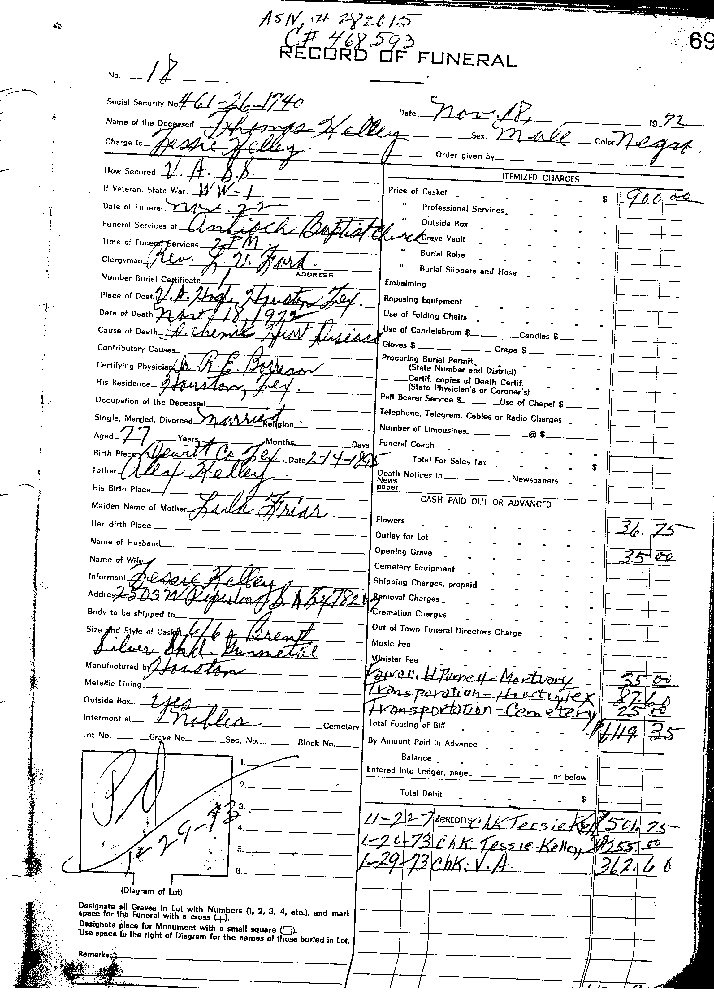 ASN, # 282015
C# 468,593
69
RECORD OF FUNERAL
No. 18
Social Security No. 461-26-1740
Date Nov. 18, 1972
Name of the Deceased Thomas Kelley Sex Male Color Negro
Charge to Tessie Kelley
Order given by
How Secured V.A. SS
If Veteran, State War WW-1
Date of Funeral Nov. 22
Funeral Services at Antioch Baptist Church
Time of Funeral Services 2 P M
Clergyman Rev. L. V. Ford
ADDRESS
Number Burial Certificate
Place of Death V.A. Hosp, Houston Tex.
Date of Death Nov 18, 1972
Cause of Death Ischemic Heart Disease
Contributory Causes
Certifying Physician Dr R.E.
His Residence Houston, Tex.
Occupation of the Deceased
Single, Married, Divorced Married Religion
Aged 77 Years Months Days
Birth Place Dewitt Co. Tex Date 2-14-1895
Father Alex Kelley
His Birth Place
Maiden Name of Mother Lula Friar
Her Birth Place
Name of Husband
Name of Wife
Informant Tessie Kelley
Address 2503 N
Body to be shipped to
Size and Style of Casket 6/6
Silver Gunmetal
Manufactured by Houston
Metallic Lining
Outside Box yes
Interment at Cemetery
Lot No. Grave No. Sec. No. Block No.
ITEMIZED CHARGES
Price of Casket $ 900.00
" Professional Services
" Outside Box
" Grave Vault
" Burial Robe
" Burial Slippers and Hose
Embalming
Reposing Equipment
Use of Folding Chairs
Use of Candelabrum $ Candles $
Gloves $ Crape $
Procuring Burial Permit
(State Number and District)
Certif. copies of Death Certif.
(State Physician's or Coroner's)
Pall Bearer Service $ Use of Chapel $
Telephone, Telegram, Cables or Radio Charges
Number of Limousines @ $
Funeral Coach
Total For Sales Tax $
Death Notices in Newspapers
News
paper
CASH PAID OUT OR ADVANCED
Flowers 36.75
Outlay for Lot
Opening Grave 35.00
Cemetery Equipment
Shipping Charges, prepaid
Removal Charges
Cremation Charges
Out of Town Funeral Directors Charge
Music Fee
Minister Fee
Mortuary 35 00
Transporation - 87.60
Transportation - Cemetery 25 00
Total Footing of Bill $1119.35
By Amount Paid in Advance
Balance
Entered into Ledger, page or below
Total Debit $
11-22-7 CREDITS Chk Tessie Kelley $501.75
1-20-73 Chk Tessie Kelley $255.00
1-29-73 Chk. V.A. 362.60
Pd
1-29-73
1.
2.
3.
4.
5.
6.
(Diagram of Lot)
Designate all Graves in Lot with Numbers (1, 2, 3, 4, etc.), and mark
space for the Funeral with a cross (+).
Designate place for Monument with a small square (□).
Use space to the right of Diagram for the names of those buried in Lot.
Remarks